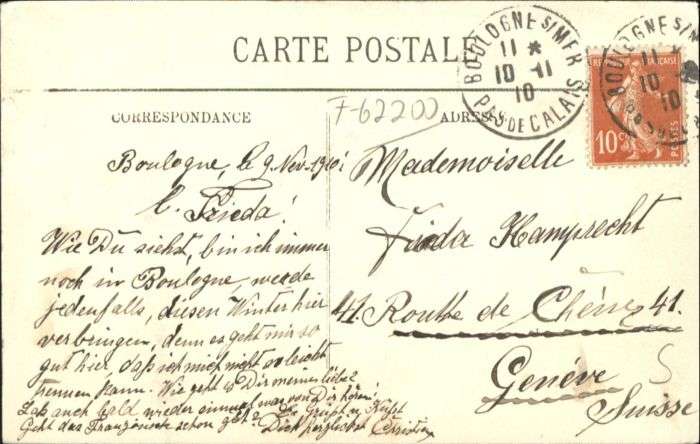 CARTE POSTALE
BOULOGNE S/MER
11 *
10 -11
10
PAS DE CALAIS
BOULOGNE S/M
11
10
10
FRANÇAISE
10c
POSTES
F-62200
CORRESPONDANCE
ADRES
Boulogne, le 9. Nov. 1910.
l. Frieda!
Wie Du siehst, bin ich immer
noch in Boulogne, werde
jedenfalls, diesen Winter hier
verbringen, denn es geht mir so
gut hier, daß ich mich nicht so leicht
trennen kann. Wie geht es Dir meine liebe?
Laß auch bald wieder einmal was von Dir hören!
Geht das Französisch schon gut? Es Grüßt u. Küßt
Dich herzlichst Christine
Mademoiselle
Frieda Kamprecht
41. Route de Chêne 41.
Genéve
Suisse